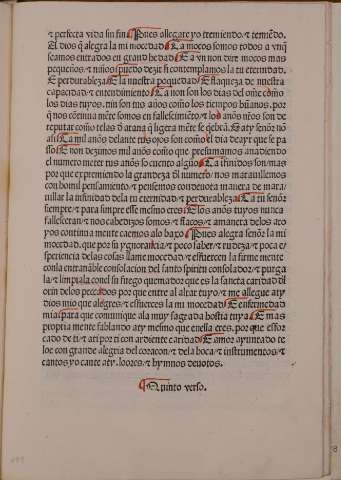 ⁊ perfecta vida sin fin Pues allegare yo tremiendo ⁊ temiēdo.
Al dios q̄ alegra la mi mocedad Ca moços somos todos a vnq̄
seamos entrados en grand hedad E a vn non dire moços mas
pequeños ⁊ niños puedo dezir si contemplamos la tu eternidad.
E perdurableza E la nuestra poquedad E flaqueza de nuestra
capacidad ⁊ entendimiento Ca non son los dias del ome como
los dias tuyos. nin son tus años como los tiempos hūanos. por
q̄ nos cōtinua mēte somos en fallescimiēto. ⁊ los años nr̄os son de
reputar como telas d̄ arana q̄ ligera mēte se q̄ebrā. E a ty señor nō
asi Ca mil años delante tus ojos son como el dia de ayr que se pa
sso E non dezimos mil años como que presumamos añadiendo
el numero meter tus años so cuento alguo Ca ifinidos son mas
por que expremiendo la grandeza d̄l numero nos marauillemos
con homil pensamiento ⁊ pensemos con deuota manera de mara
uillar la infinidad dela tu eternidad ⁊ perdurableza Ca tu señor
siempre ⁊ para sinpre esse mesmo eres E los años tuyos nunca
fallesceran ⁊ nos cabedizos somos ⁊ flacos ⁊ a manera delos aro
yos continua mente caemos alo baxo Pues alegra señor la mi
mocedad. que por su ygnorancia ⁊ poco saber ⁊ rudeza ⁊ poca es
speriencia delas cosas llame mocedad ⁊ esfuercen la firme mente
con la entrañable consolacion del santo spiritu consolador ⁊ purga
la ⁊ limpiala conel su fuego quemador que es la saneta caridad d̄l
orin delos peccados por que entre al altar tuyo. ⁊ me allegue aty
dios mio que alegres ⁊ esfuerces la mi mocedad E enfermedad
mia para que comunique ala muy sagrada hostia tuya E mas
propria mente fablando aty mesmo que enella eres. por que esfor
cado de ti ⁊ ati por ti con ardiente caridad E amor ayuntado te
loe con grande alegria del coraçon ⁊ dela boca ⁊ instrumentos ⁊
cantos yo cante aty. loores ⁊ hymnos deuotos.
Quinto verso.